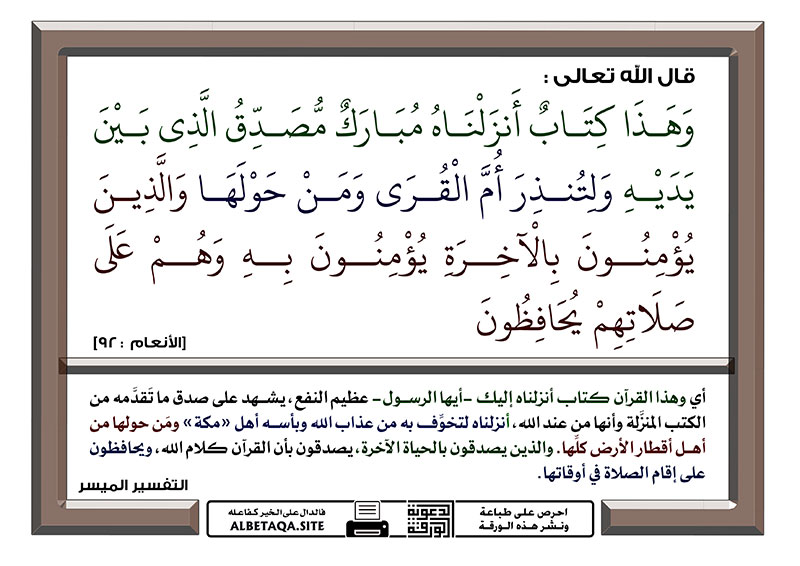 قال الله تعالى :
وَهَـذَا كِتَـابٌ أَنزَلْنَـاهُ مُبَـارَكٌ مُّصَـدِّقُ الَّذِى بَـيْنَ
يَدَيْـهِ وَلِتُنـذِرَ أُمَّ الْقُـرَى وَمَـنْ حَوْلَهَـا وَالَّذِيـنَ
يُؤْمِنُـونَ بِالْآخِـرَةِ يُؤْمِنُـونَ بِـهِ وَهُـمْ عَلَى
صَلَاتِهِمْ يُحَافِظُونَ
[الأنعام : ٩٢]
أي وهذا القرآن كتاب أنزلناه إليك -أيها الرسول- عظيم النفع، يشهد على صدق ما تَقدَّمه من
الكتب المنزَّلة وأنها من عند الله، أنزلناه لتخوِّف به من عذاب الله وبأسه أهل «مكة» ومَن حولها من
أهل أقطار الأرض كلِّها. والذين يصدقون بالحياة الآخرة، يصدقون بأن القرآن كلام الله، ويحافظون
على إقام الصلاة في أوقاتها.
التفسير الميسر
احرص على طباعة
ونشر هذه الورقة
الدعوية
الورقة
فالدال على الخير كفاعله
ALBETAQA.SITE